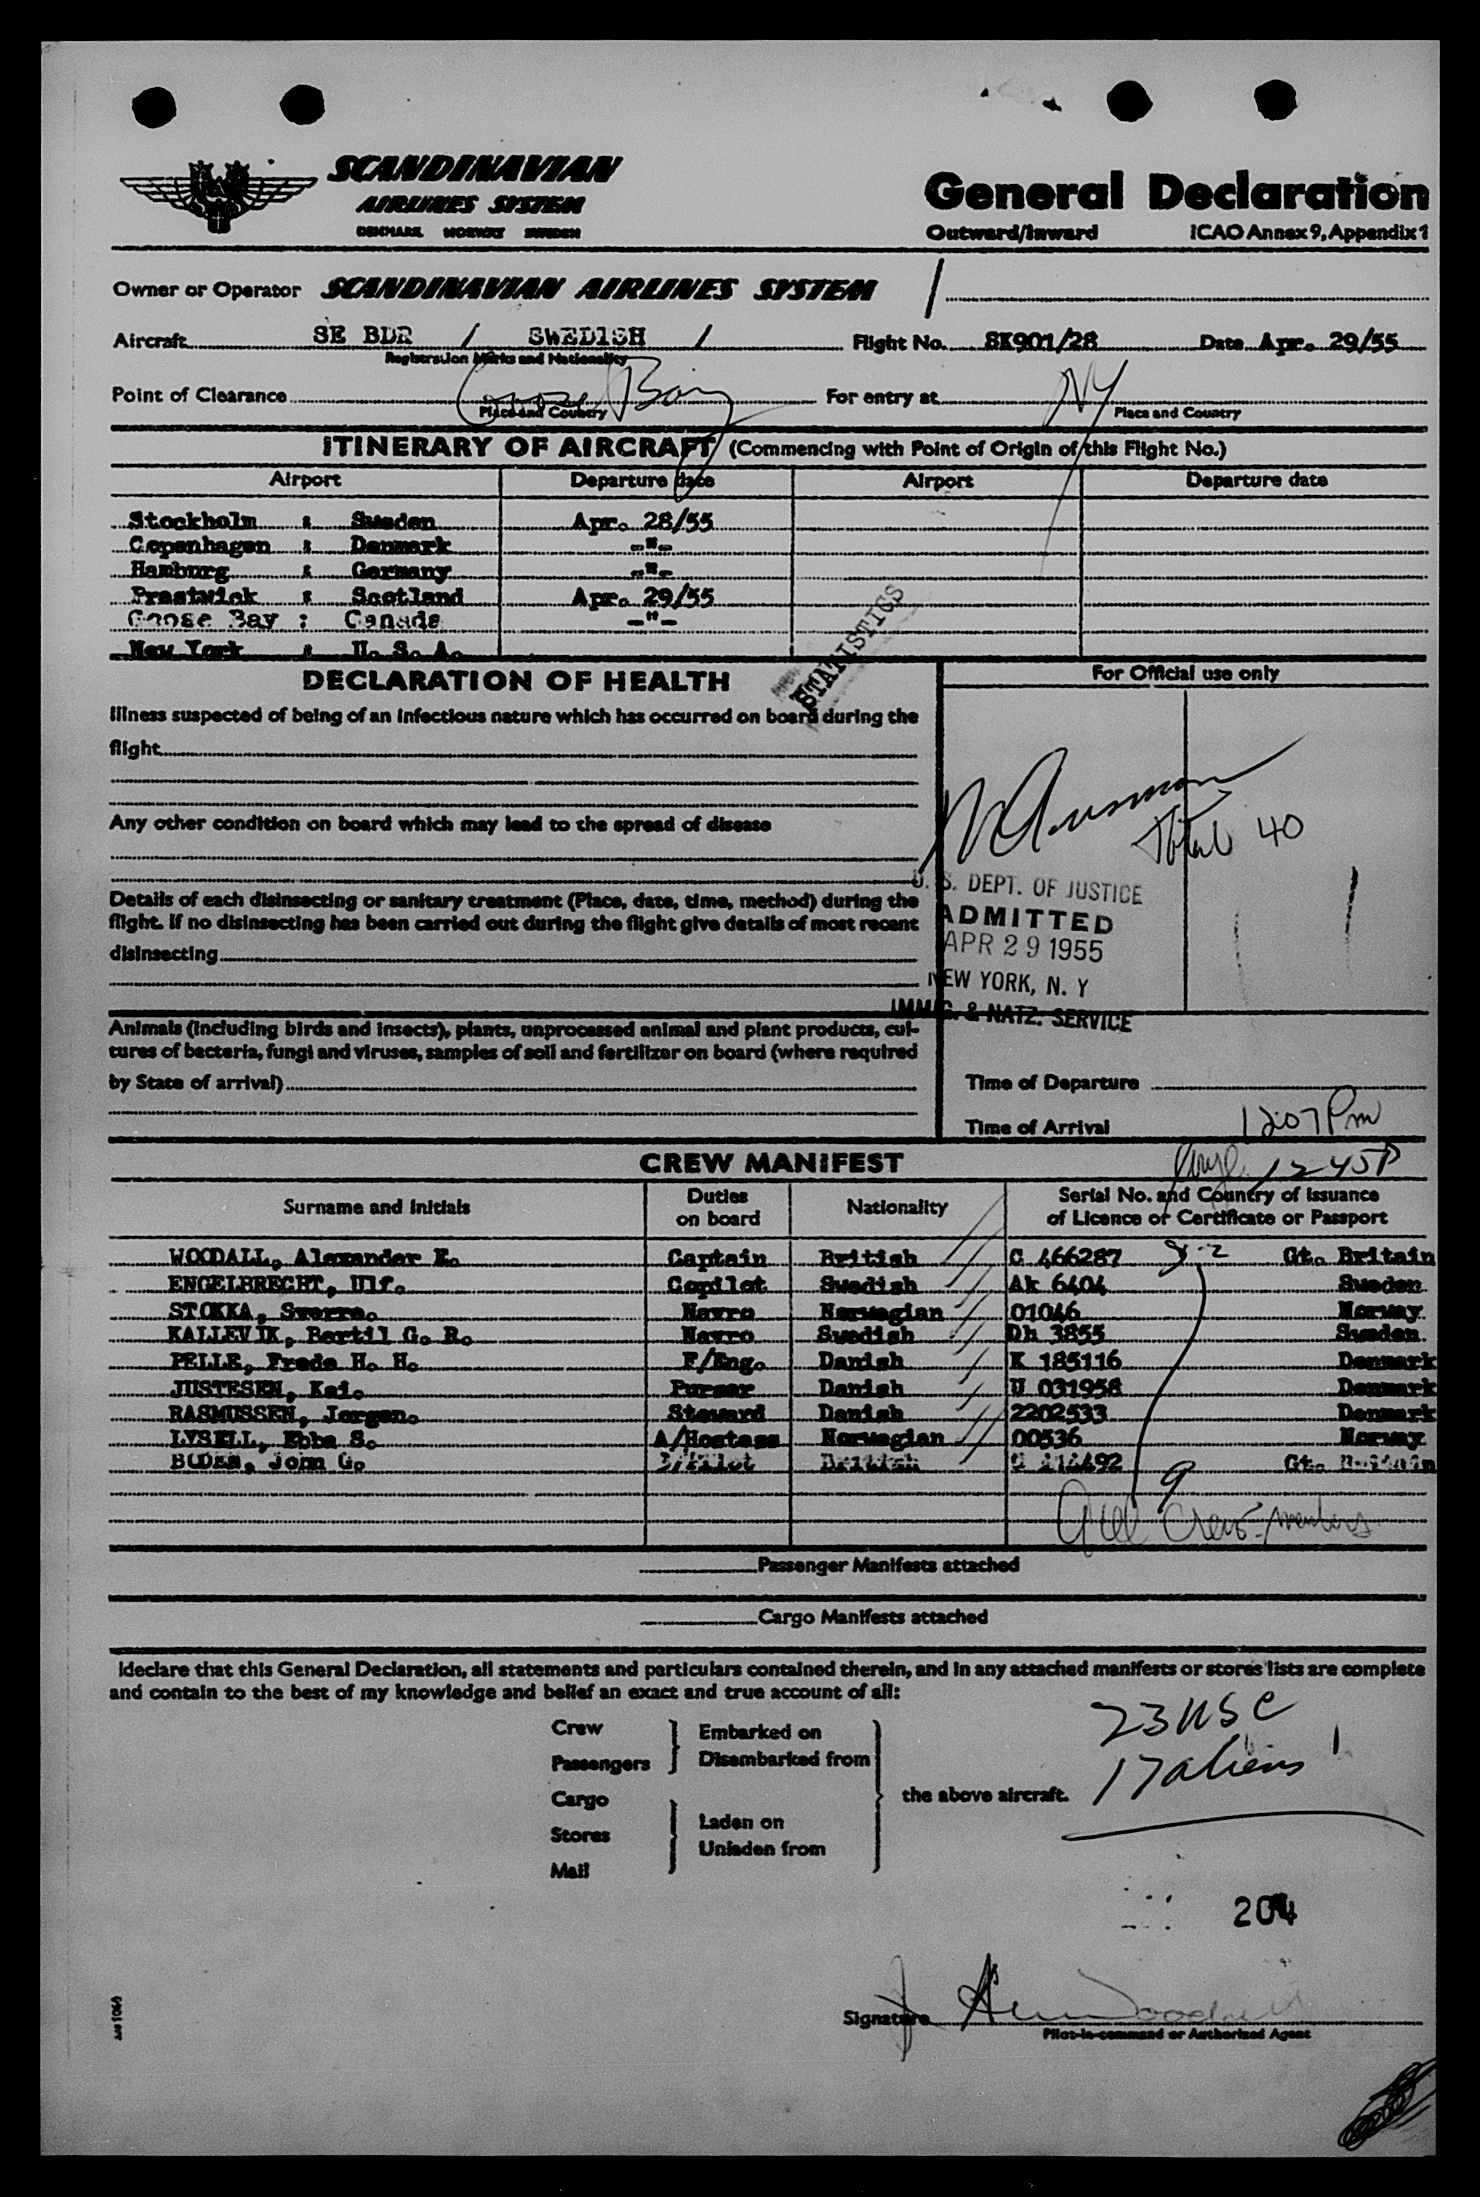 SCANDINAVIAN
AIRLINES SYSTEM
DENMARK NORWAY SWEDEN
General Declaration
Outward/Inward ICAO Annex 9, Appendix 1
Owner or Operator SCANDINAVIAN AIRLINES SYSTEM /
Aircraft SE BDR / SWEDISH / Flight No. SK901/28 Date Apr. 29/55
Registration Marks and Nationality
Point of Clearance Goose Bay For entry at NY
Place and Country Place and Country
ITINERARY OF AIRCRAFT (Commencing with Point of Origin of this Flight No.)
Airport Departure date Airport Departure date
Stockholm : Sweden Apr. 28/55
Copenhagen : Denmark -"-
Hamburg : Germany -"-
Prestwick : Scotland Apr. 29/55
Goose Bay : Canada -"-
New York : U. S. A.
STATISTICS
DECLARATION OF HEALTH
Illness suspected of being of an infectious nature which has occurred on board during the
flight
Any other condition on board which may lead to the spread of disease
Details of each disinsecting or sanitary treatment (Place, date, time, method) during the
flight. If no disinsecting has been carried out during the flight give details of most recent
disinsecting
Animals (including birds and insects), plants, unprocessed animal and plant products, cul-
tures of bacteria, fungi and viruses, samples of soil and fertilizer on board (where required
by State of arrival)
For Official use only
Total 40
U. S. DEPT. OF JUSTICE
ADMITTED
APR 29 1955
NEW YORK, N. Y
IMMIG. & NATZ. SERVICE
Time of Departure
Time of Arrival 1207 Pm
1245P
CREW MANIFEST
Surname and Initials Duties on board Nationality Serial No. and Country of Issuance of Licence or Certificate or Passport
WOODALL, Alexander E. Captain British C 466287 Gt. Britain
ENGELBRECHT, Ulf. Copilot Swedish Ak 6404 Sweden
STOKKA, Sverre. Navro Norwegian 01046 Norway
KALLEVIK, Bertil G. R. Navro Swedish Dh 3855 Sweden
PELLE, Frede H. H. F/Eng. Danish K 185116 Denmark
JUSTESEN, Kai. Purser Danish U 031958 Denmark
RASMUSSEN, Jorgen. Steward Danish 2202533 Denmark
LYSELL, Ebba S. A/Hostess Norwegian 00536 Norway
BODEN, John G. British Gt. Britain
9
Crew members
Passenger Manifests attached
Cargo Manifests attached
I declare that this General Declaration, all statements and particulars contained therein, and in any attached manifests or stores lists are complete
and contain to the best of my knowledge and belief an exact and true account of all:
Crew
Passengers
Embarked on
Disembarked from
Cargo
Stores
Mail
Laden on
Unladen from
the above aircraft.
23 USC
17 aliens
204
Signature
Pilot-in-command or Authorized Agent